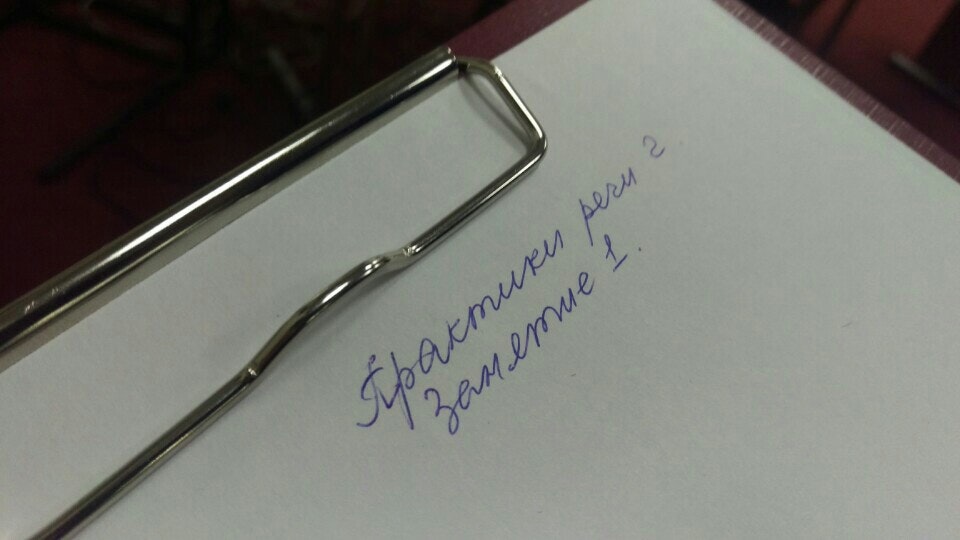 Практики речи 2
Занятие 1.